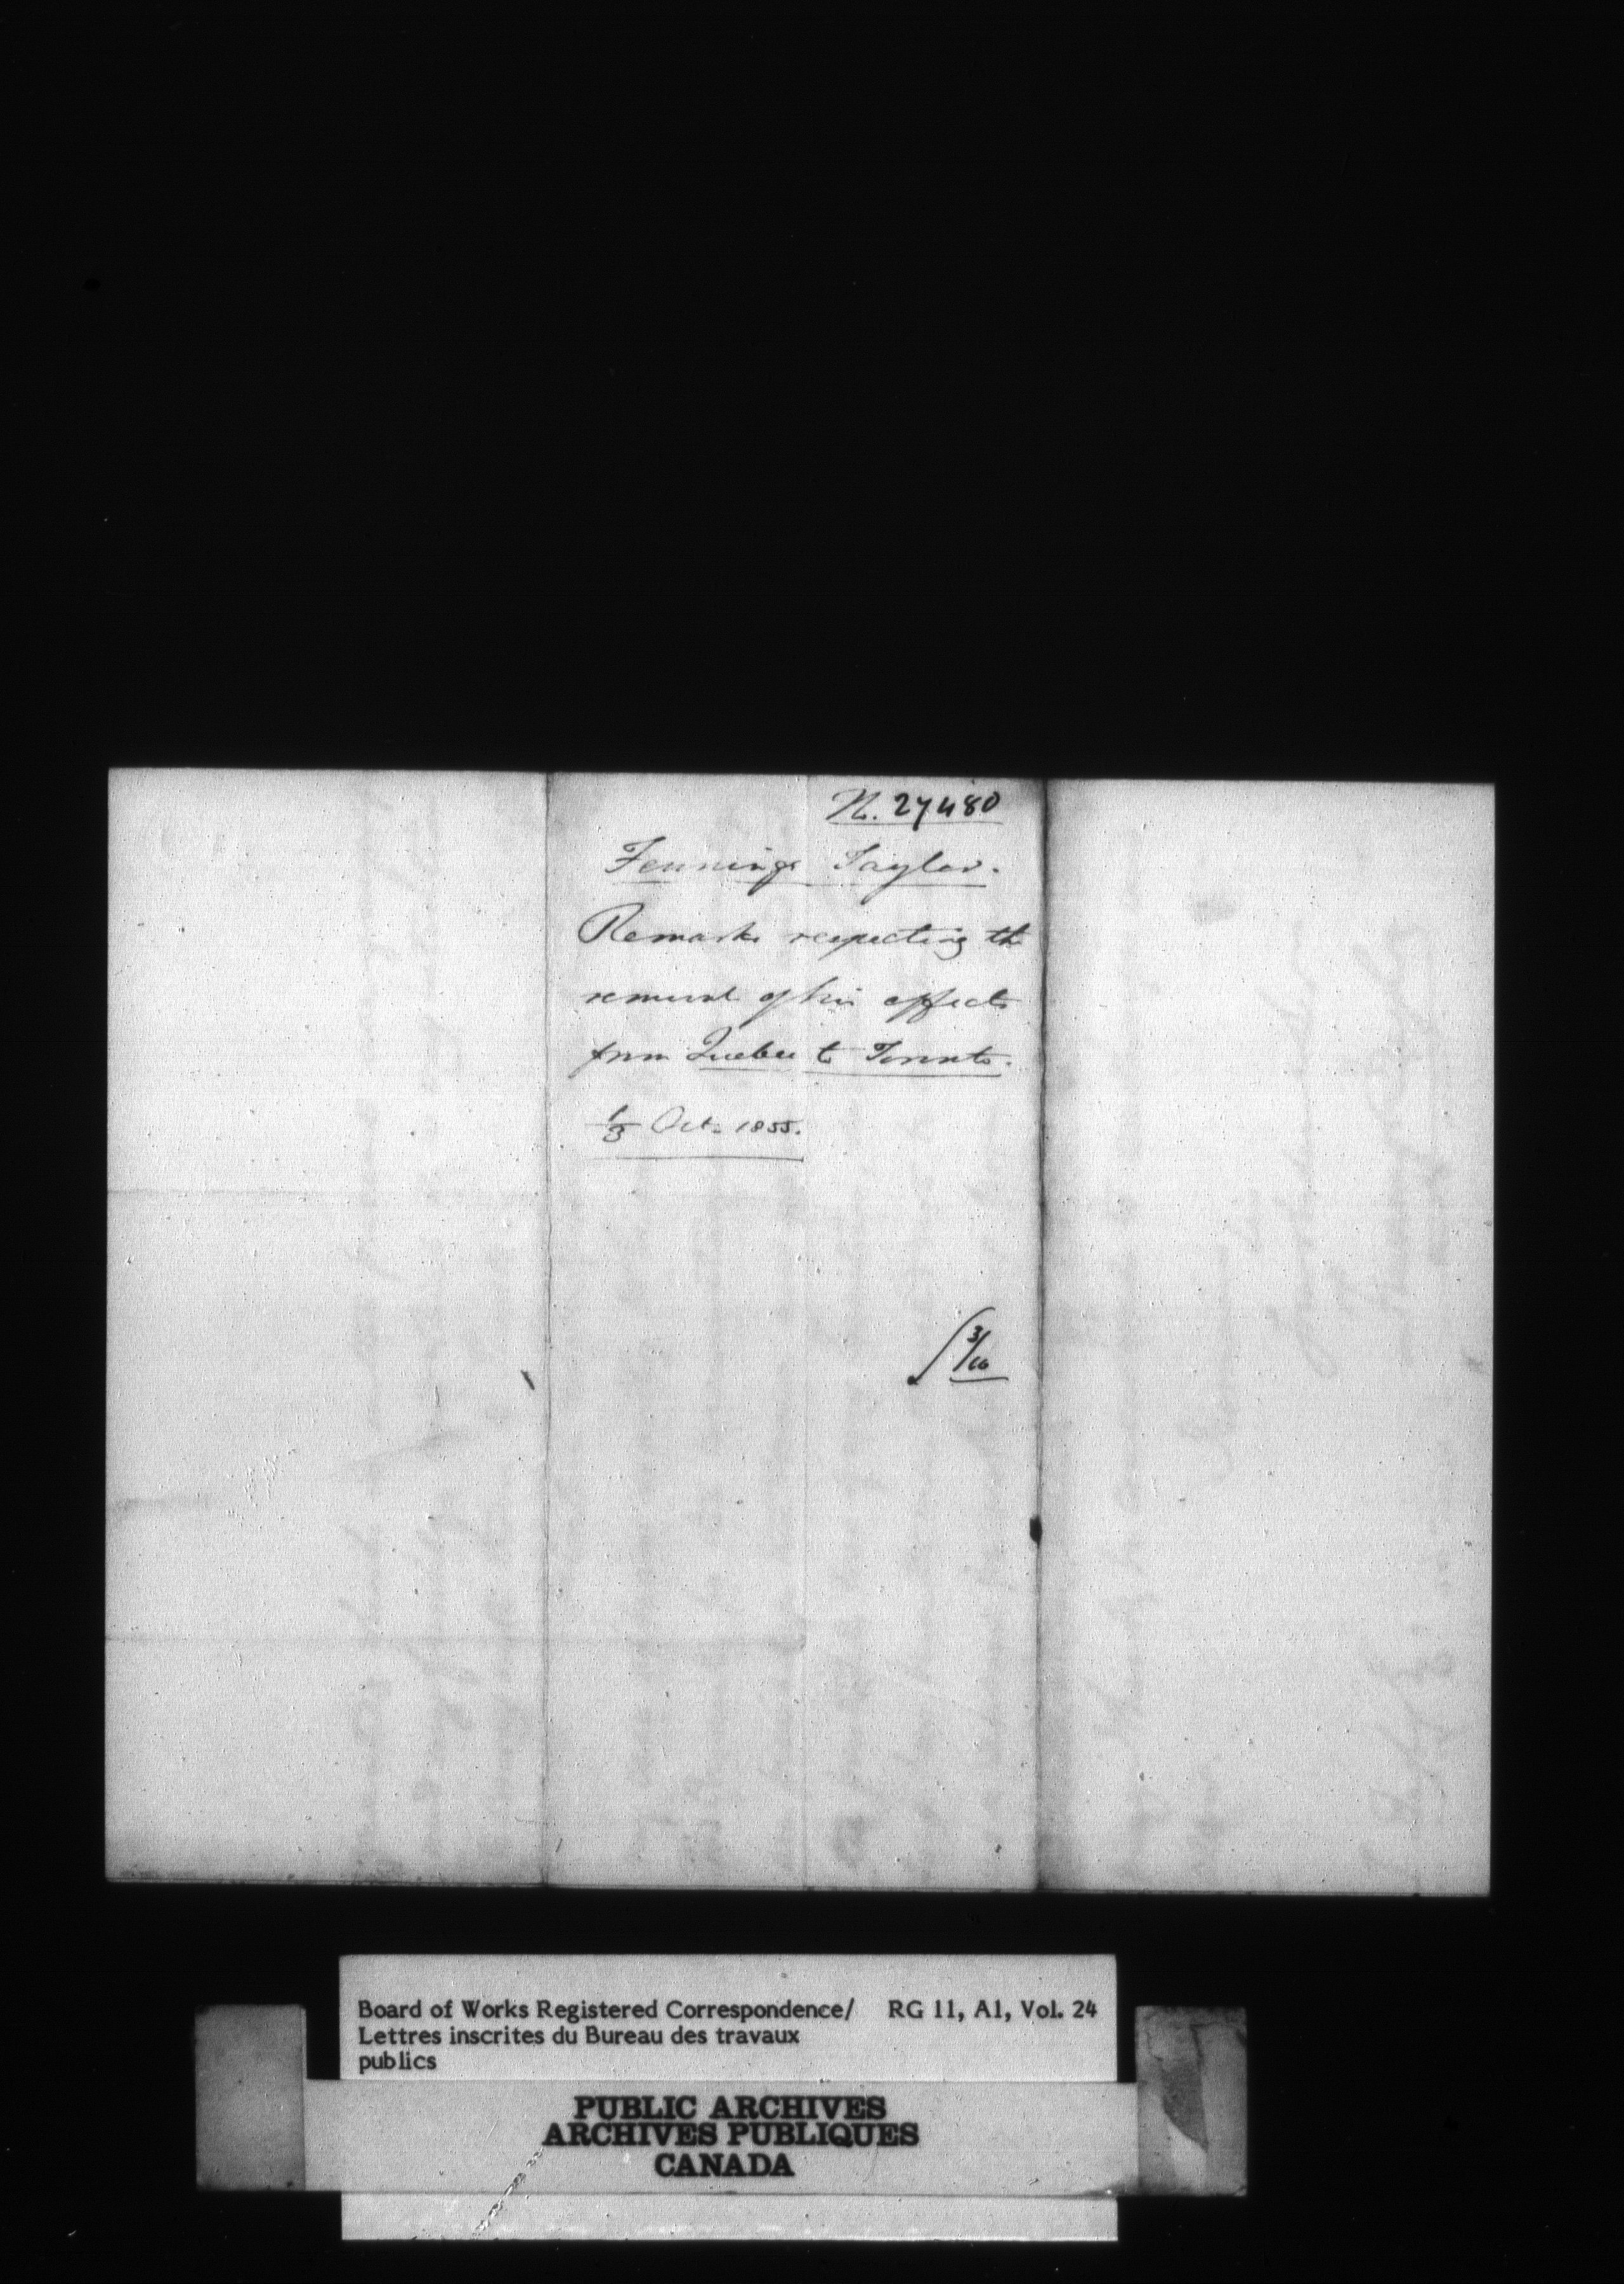 No. 27480
Fennings Taylor.
Remarks respecting the
removal of his effects
from Quebec to Toronto.
1/3 Oct. 1855.
3/10
Board of Works Registered Correspondence/ RG 11, A1, Vol. 24
Lettres inscrites du Bureau des travaux
publics
PUBLIC ARCHIVES
ARCHIVES PUBLIQUES
CANADA